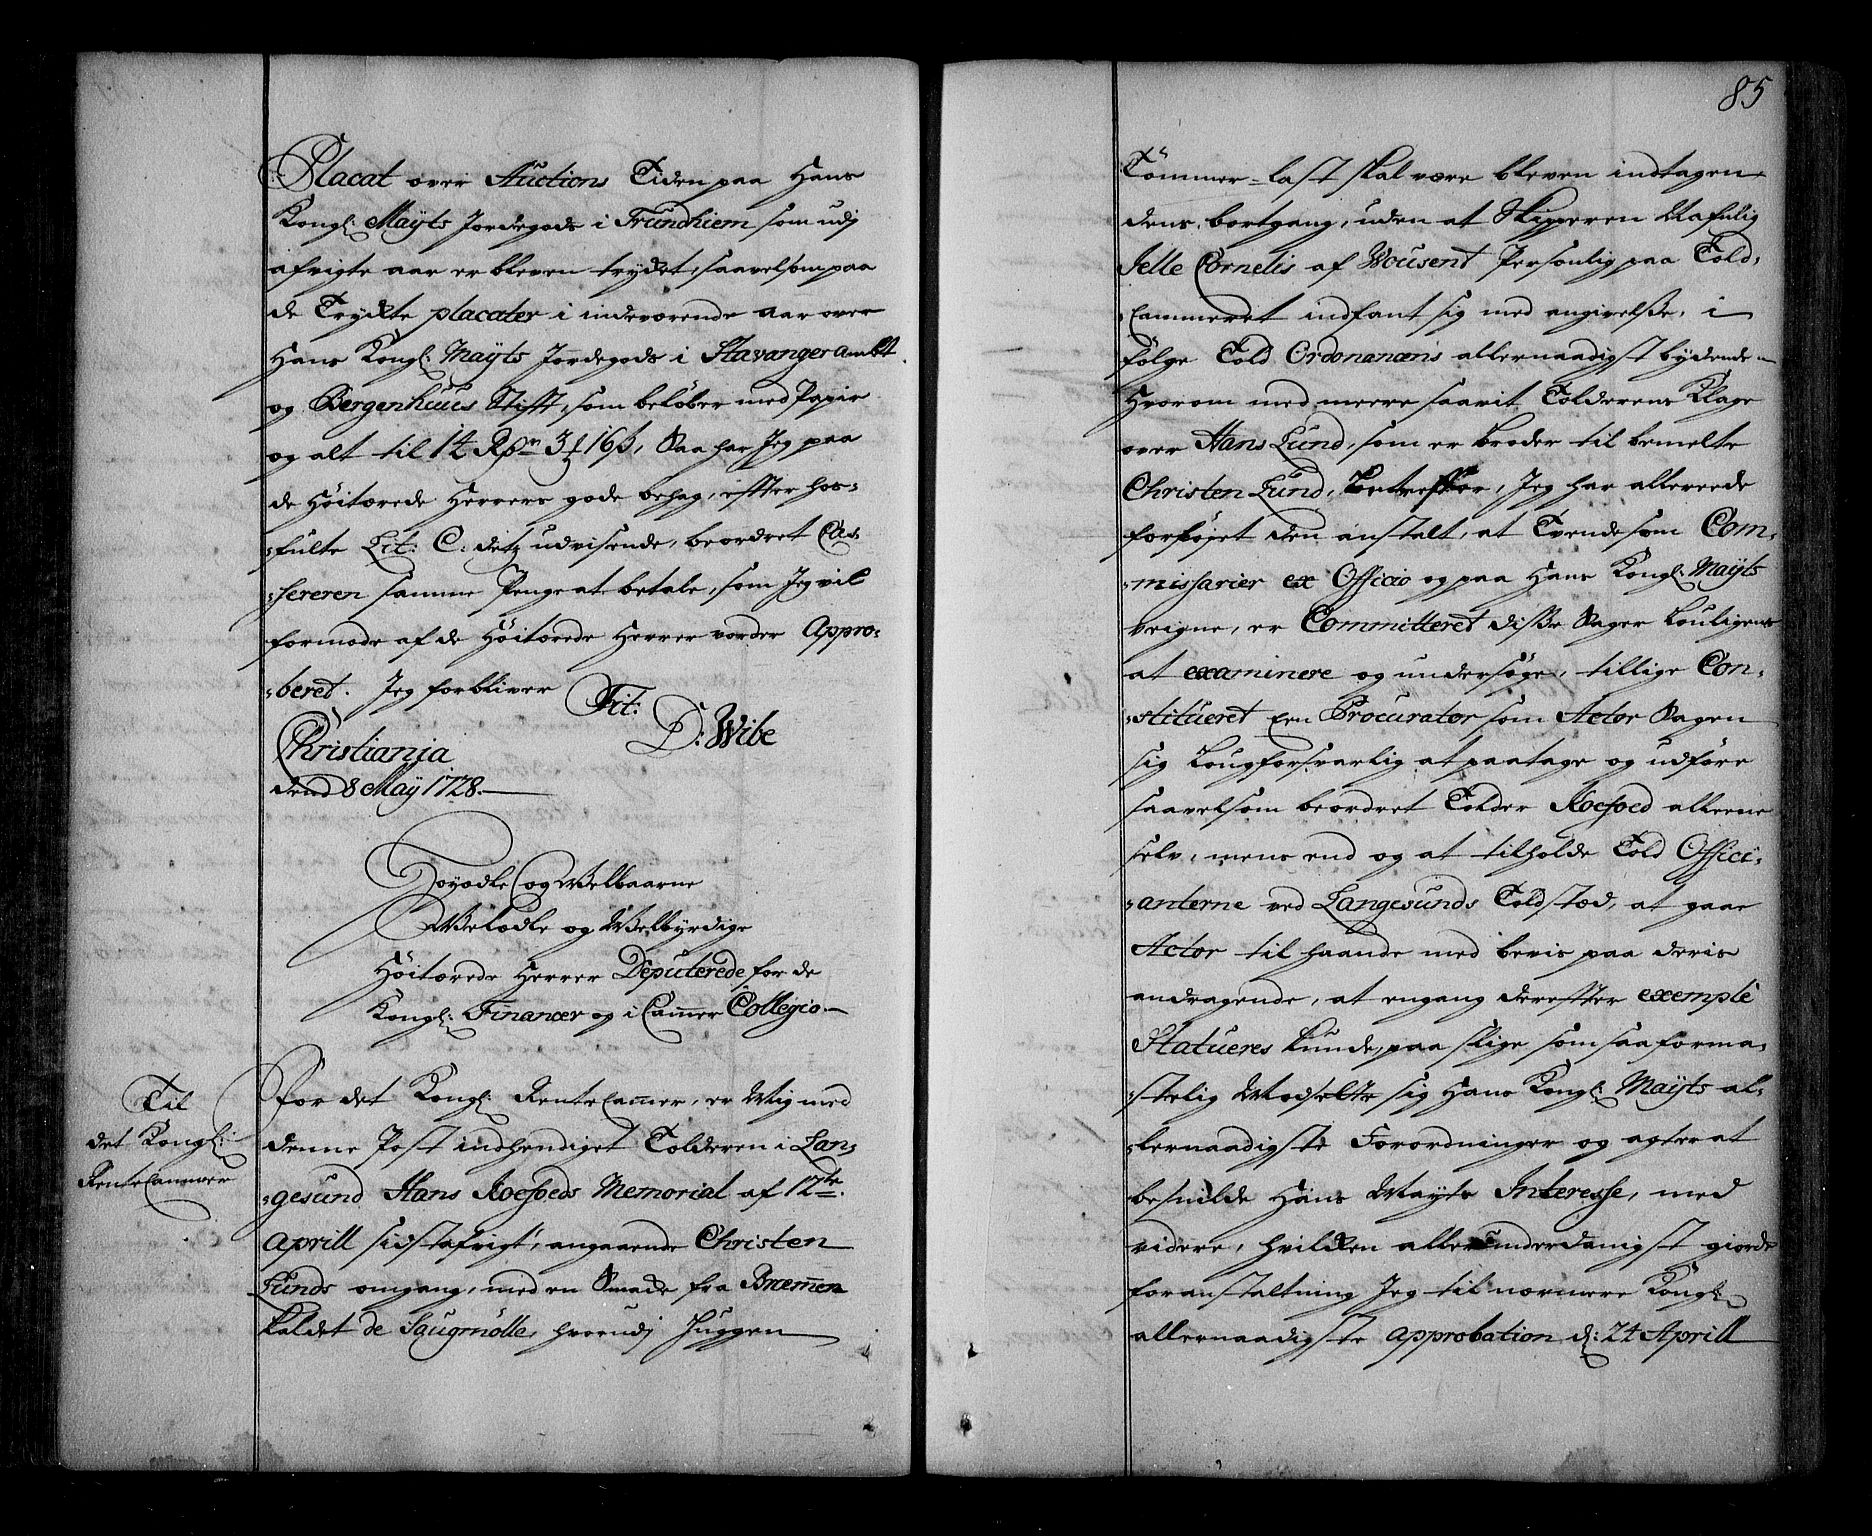 Placat over Auctions Tiden paa Hans
Kongl: Mayts Jordegods i Trundhiem som udj
afvigte aar er bleven trydt, saavelsom paa
de Trykte placater i indeværende aar over
Hans Kongl: Mayts Jordegods i Stavanger ambt
og Bergenhuus Stift, som beløber med Papir
og alt til 14 Rdr 3 16 s, Saa har Jeg paa
de Höitærede Herrers gode behag, effter hos-
-fulte Lit: C: detz udvisende, beordret Cas-
-sereren samme Penge at betale, som Jeg vil
formode af de Höitærede Herrer vorder Appro-
-beret. Jeg forbliver
Tit:
D: Wibe
Christiania
dend 8 May 1728.
Høyædle og Welbaarne
Welædle og Welbyrdige
Höitærede Herrer Deputerede for de
Kongl: Financer og i Cammer Collegio
Til
det Kongl:
Rente Cammer
For det Kongl: Rente Cammer, er Mig med
denne Post indhendiget Tolderen i Lan-
-gesund Hans Roefoeds Memorial af 12te
Aprill sidstafvigt, angaaende Christen
Lunds omgang, med en Smade fra Bræmen
kaldet de Saugmölle, hvorudj Huggen
85
Tömmer-last skal være bleven indtagen
dens bortgang, uden at Skipperen Nafnlig
Jelle Cornelis af Wousent Personlig paa Told-
-Cammeret indfant sig med angivelße, i
følge Told Ordonancens allernaadigst bydende
Hvorom med meere saavit Tolderens Klage
over Hans Lund, som er broder til bemelte
Christen Lund, betreffer, Jeg har allereede
forføjet den anstalt, at Tvende som Com-
-missarier ex Officio og paa Hans Kongl: Mayts
veigne, er Committeret diße Sager Louligens
at examinere og undersøge, tillige Con-
-stitueret Een Procurator som Actor Sagen
sig Lougforsvarlig at paatage og udføre
saavelsom beordret Tolder Roefoed alleene
selv, mens end og at tilholde Told Offici-
-anterne ved Langesunds Toldstæd, at gaae
Actor til haande med bevis paa deris
andragende, at engang derefter exemple
Statueres kunde, paa slige som saa forma-
-stelig Modsette sig Hans Kongl: Mayts al-
-lernaadigste Forordninger og agter at
besnilde Hans Mayts Interesse, med
videre, hvilken allerunderdanigst giorde
foranstaltning Jeg til nærmere Kongl:
allernaadigste approbation d: 24 Aprill